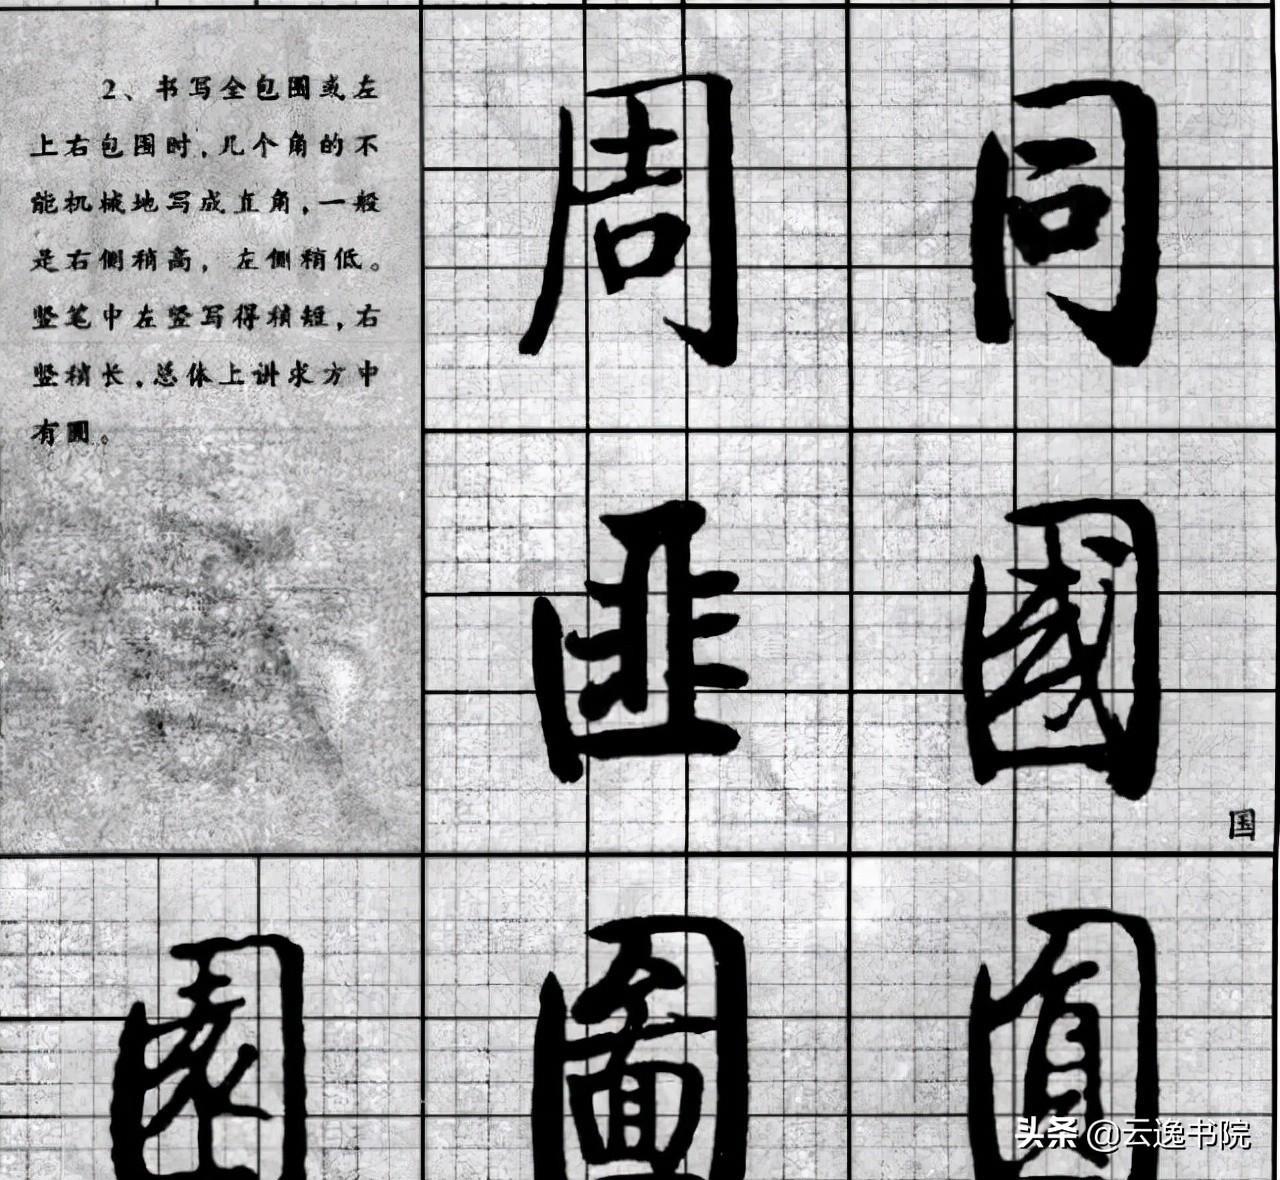 2、书写全包围或左
上右包围时,几个角的不
能机械地写成直角,一般
是右侧稍高,左侧稍低。
竖笔中左竖写得稍短,右
竖稍长,总体上讲求方中
有圆。
周 同
匪 國
国
園 圖 圓
头条 @云逸书院